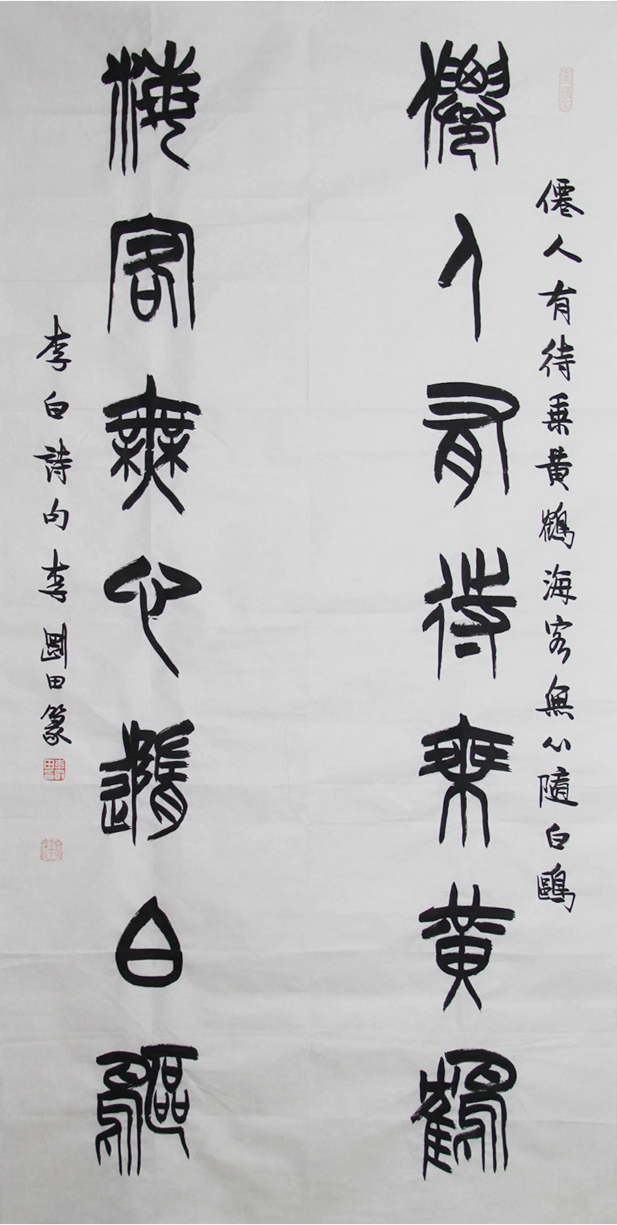 僊人有待乘黄鶴海客無心隨白鷗
僊人有待乘黄鶴
海客無心隨白鷗
李白詩句李剛田篆